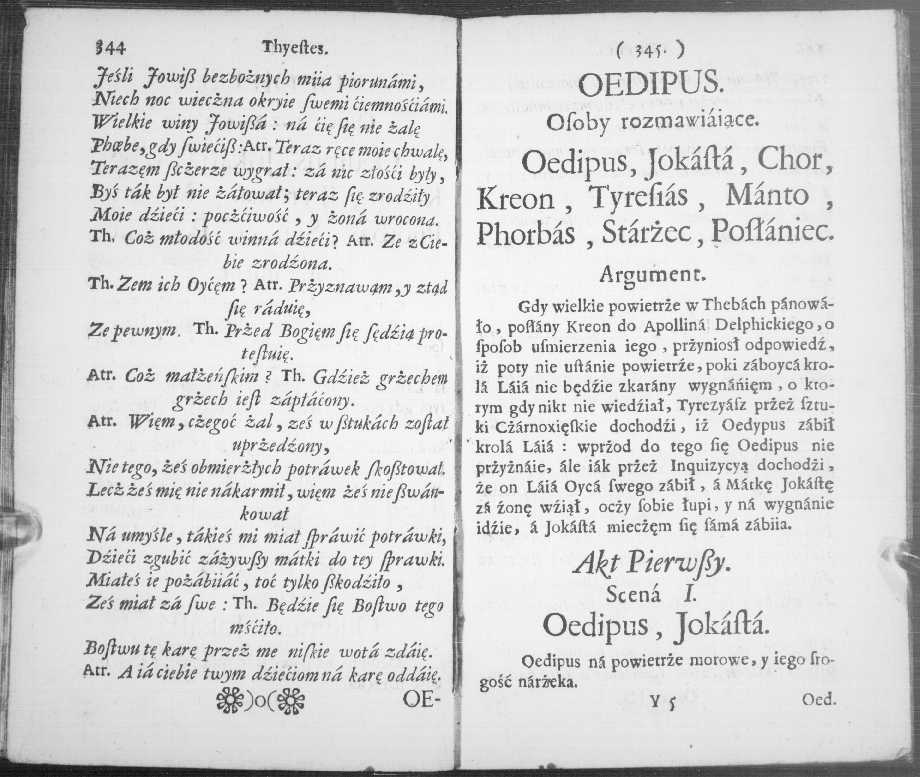 344 Thyeſtes.
Jeśli Jowiß bezbożnych miia piorunámi,
Niech noc wiecżna okryie ſwemi ćiemnośćiámi.
Wielkie winy Jowißá : ná ćię ſię nie żalę
Phœbe, gdy ſwiećiß: Atr. Teraz ręce moie chwalę,
Terazęm ßcżerze wygrał: zá nic złośći były,
Byś ták był nie żáłował; teraz ſię zrodźiły
Moie dźieći : pocżćiwość , y żoná wrocona.
Th. Coż młodość winná dźieći? Atr. Ze z Cie-
bie zrodźona.
Th. Zem ich Oyćęm ? Atr. Prżyznawąm, y ztąd
ſię ráduię,
Ze pewnym. Th. Prżed Bogięm ſię ſędźią pro-
teſtuię.
Atr. Coż małżeńſkim ? Th. Gdźież grżechem
grżech ieſt zápłáćony.
Atr. Więm, cżegoć żal, ześ w ſztukách zoſtał
uprżedźony,
Nie tego, żeś obmierżłych potráwek ſkoßtował.
Lecż żeś mię nie nákarmił, więm żeś nie ßwán-
kował
Ná umyśle, tákieś mi miał ſpráwić potráwki,
Dźieći zgubić záżywſßy mátki do tey ſprawki.
Miałeś ie pożábiiáć , toć tylko ßkodźiło ,
Ześ miał zá ſwe : Th. Będźie ſię Boſtwo tego
mśćiło.
Boſtwu tę karę przeż me niſkie wotá zdáię.
Atr. A iá ciebie twym dźiećiom ná karę oddáię.
)o( OE-
( 345. )
OEDIPUS.
Oſoby rozmawiáiące.
Oedipus, Jokáſtá , Chor,
Kreon , Tyreſiás , Mánto ,
Phorbás , Stárżec, Poſłániec.
Argument.
Gdy wielkie powietrże w Thebách pánowá-
ło , poſłány Kreon do Apolliná Delphickiego, o
ſpoſob uſmierzenia iego , prżynioſł odpowiedź,
iż poty nie uſtánie powietrże, poki záboycá kro-
lá Láiá nie będźie zkarány wygnáńięm , o kto-
rym gdy nikt nie wiedźiał, Tyrezyáſz prżeż ſztu-
ki Cżárnoxięſkie dochodźi , iż Oedypus zábił
krolá Láiá : wprżod do tego ſię Oedipus nie
prżyżnáie, ále iák prżeż Inquizycyą dochodźi ,
że on Láiá Oycá ſwego zábił , á Mátkę Jokáſtę
zá żonę wźiął , ocży ſobie łupi, y ná wygnánie
idźie, á Jokáſtá miecżęm ſię ſámá zábiia.
Akt Pierwſßy.
Scená I.
Oedipus , Jokáſtá.
Oedipus ná powietrże morowe, y iego ſro-
gość nárżeka.
Y 5 Oed.